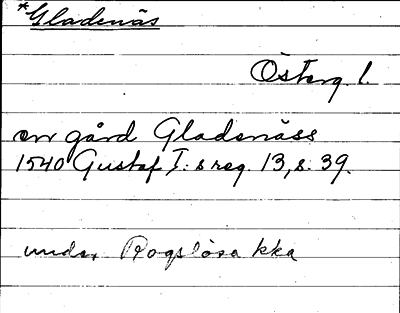 *Gladenäs
Österg. l.
en gård Gladsnäss
1540 Gustaf I: s reg. 13, s. 39.
under Rogslösa kka